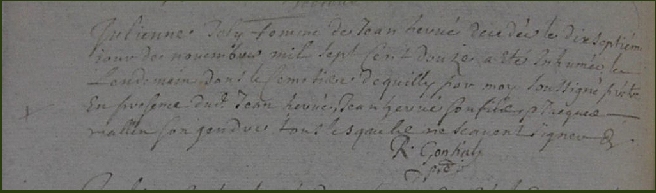 Julienne Dely femme de Jean herué decedée le dix septiém
iour de novembre mil sept cent douze a eté inhumée le
Lendemain dans le Cemetiere dequilly par moy soussigné prêtre
En presence dudt Jean herué Jean herué son fils Jacques
mallen son gendre tous lesquels ne scavent signer &
R. Gonhel